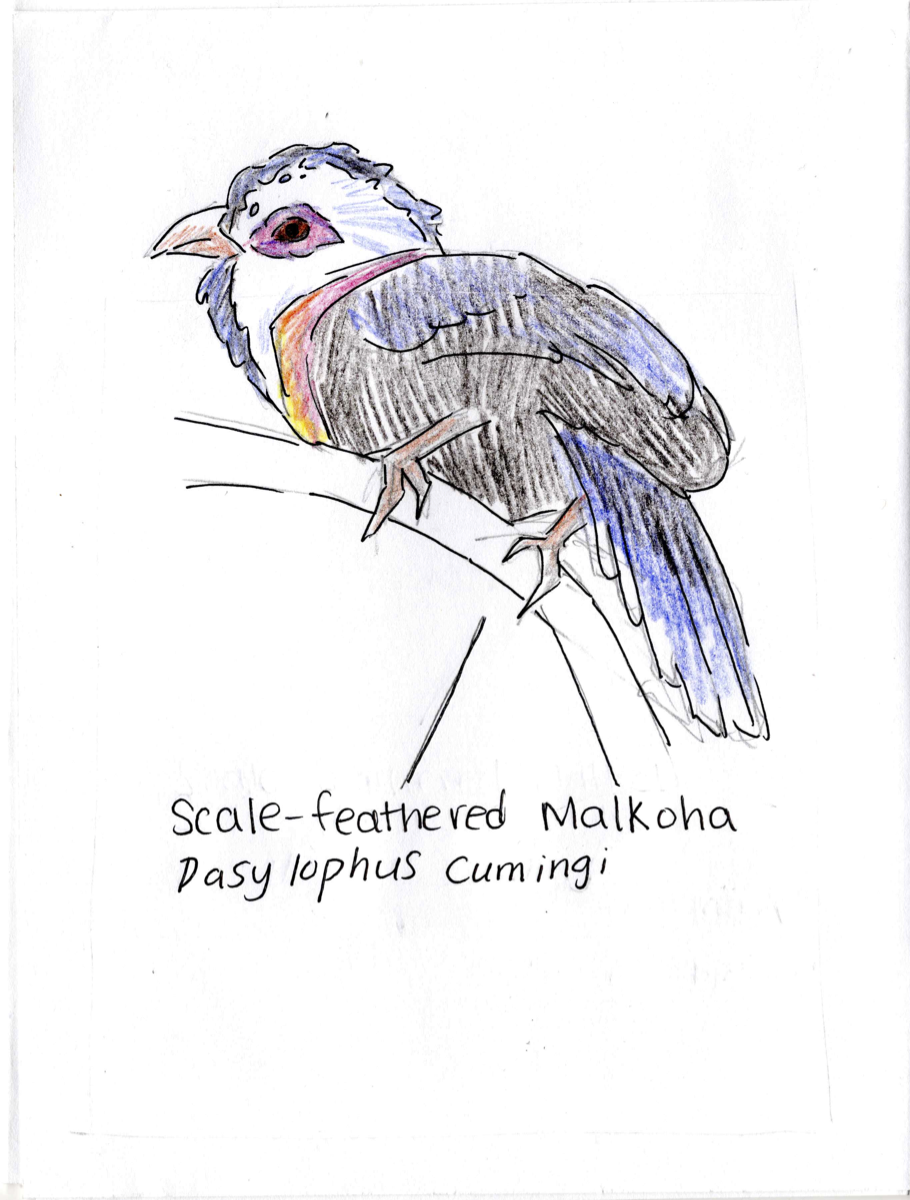 Scale-feathered Malkoha
Dasylophus cumingi